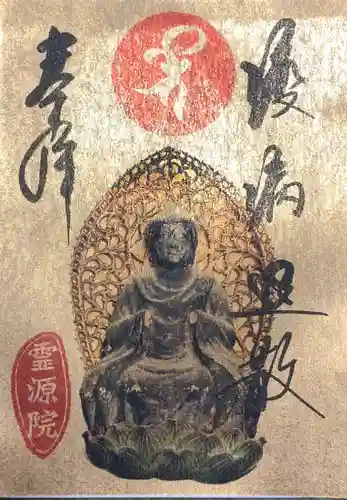 疫病退散
奉拝
霊源院